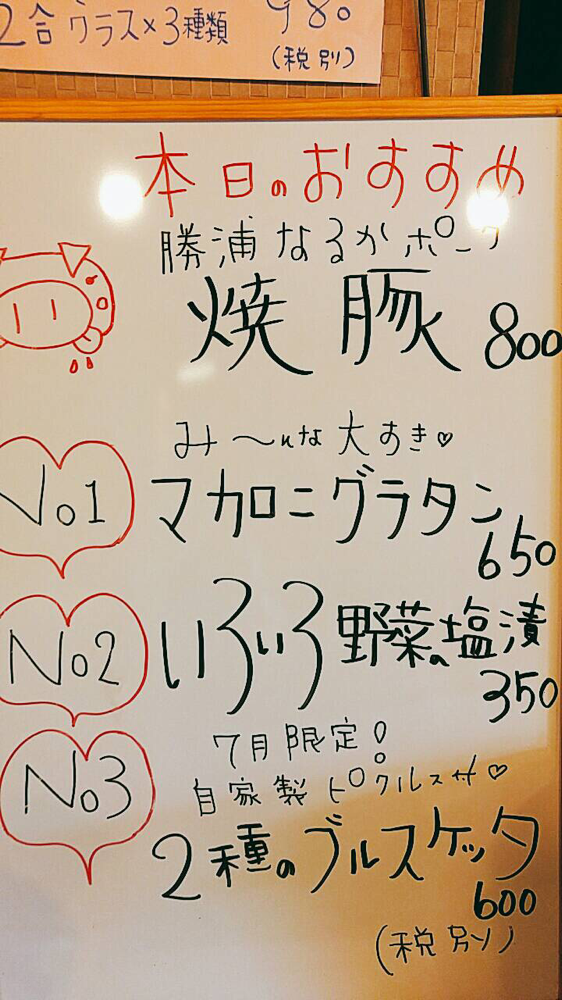 2合グラス×3種類 980
(税別)
本日のおすすめ
勝浦なるかポーク
焼豚 800
み〜んな大すき♡
No1 マカロニグラタン
650
No2 いろいろ野菜の塩漬
350
7月限定!
No3 自家製ピクルス付♡
2種のブルスケッタ
600
(税別)